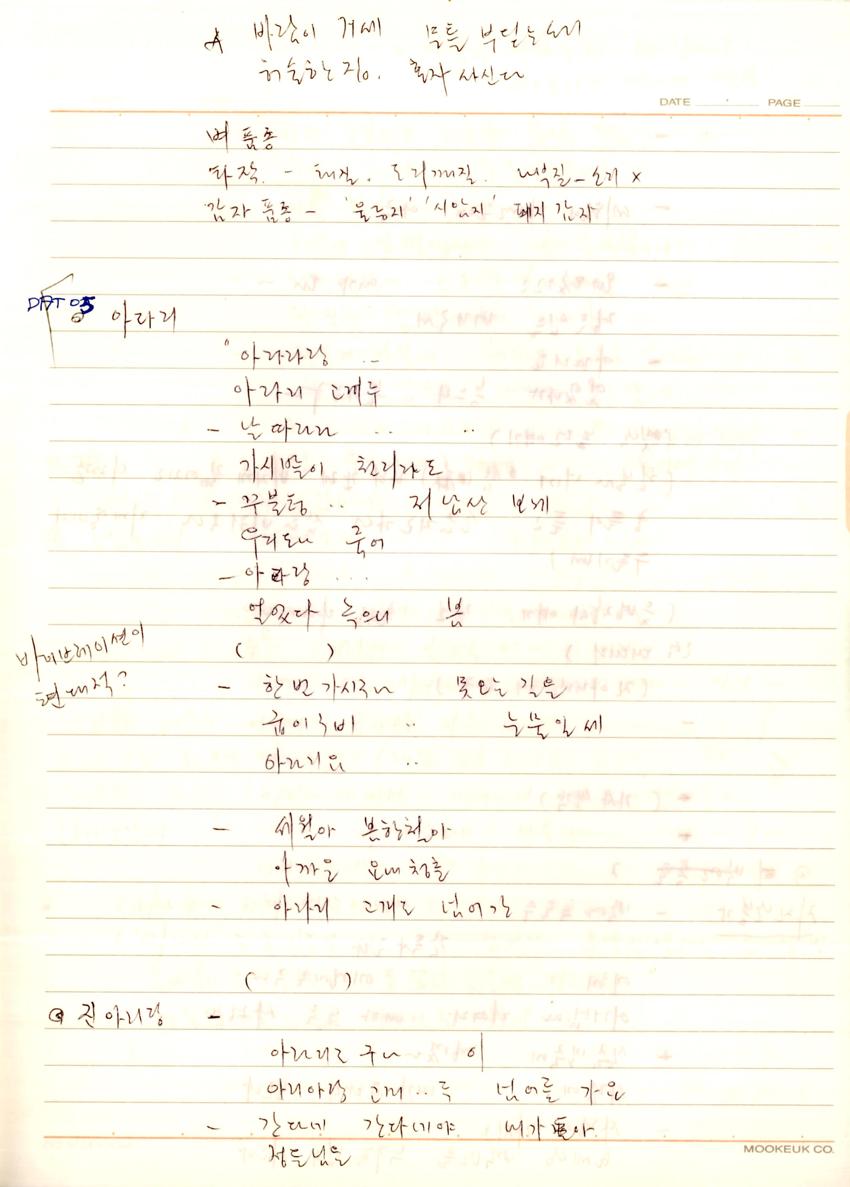 바람이 거세 문틀 부딛는 소리
허술한 집. 혼자 사신다
DATE PAGE
벼 품종
타작. - 태질. 도리깨질. 벼훑질 - 소리 x
감자 품종 - '울릉지' '시암지' 돼지감자
DAT 05 아라리
" 아라리랑 ..
아라리 고개루
- 날 따라라 .. ..
가시밭이 천리라도
- 꾸불텅 .. 저 남산 보게
우리도나 죽어
- 아라랑 ....
얼었다 녹으니 봄
바이브레이션이
현대적?
( )
- 한번 가시구나 못오는 길을
굽이구비 .. 눈물일세
아라리요 ..
- 세월아 봄한철아
아까운 요내청춘
- 아라리 고개로 넘어간
( )
진아리랑 -
아라리로구나 이
아리아랑 고개..득 넘어를 가요
- 간다네 간다네야 내가 돌아
정든님을
MOOKEUK CO.